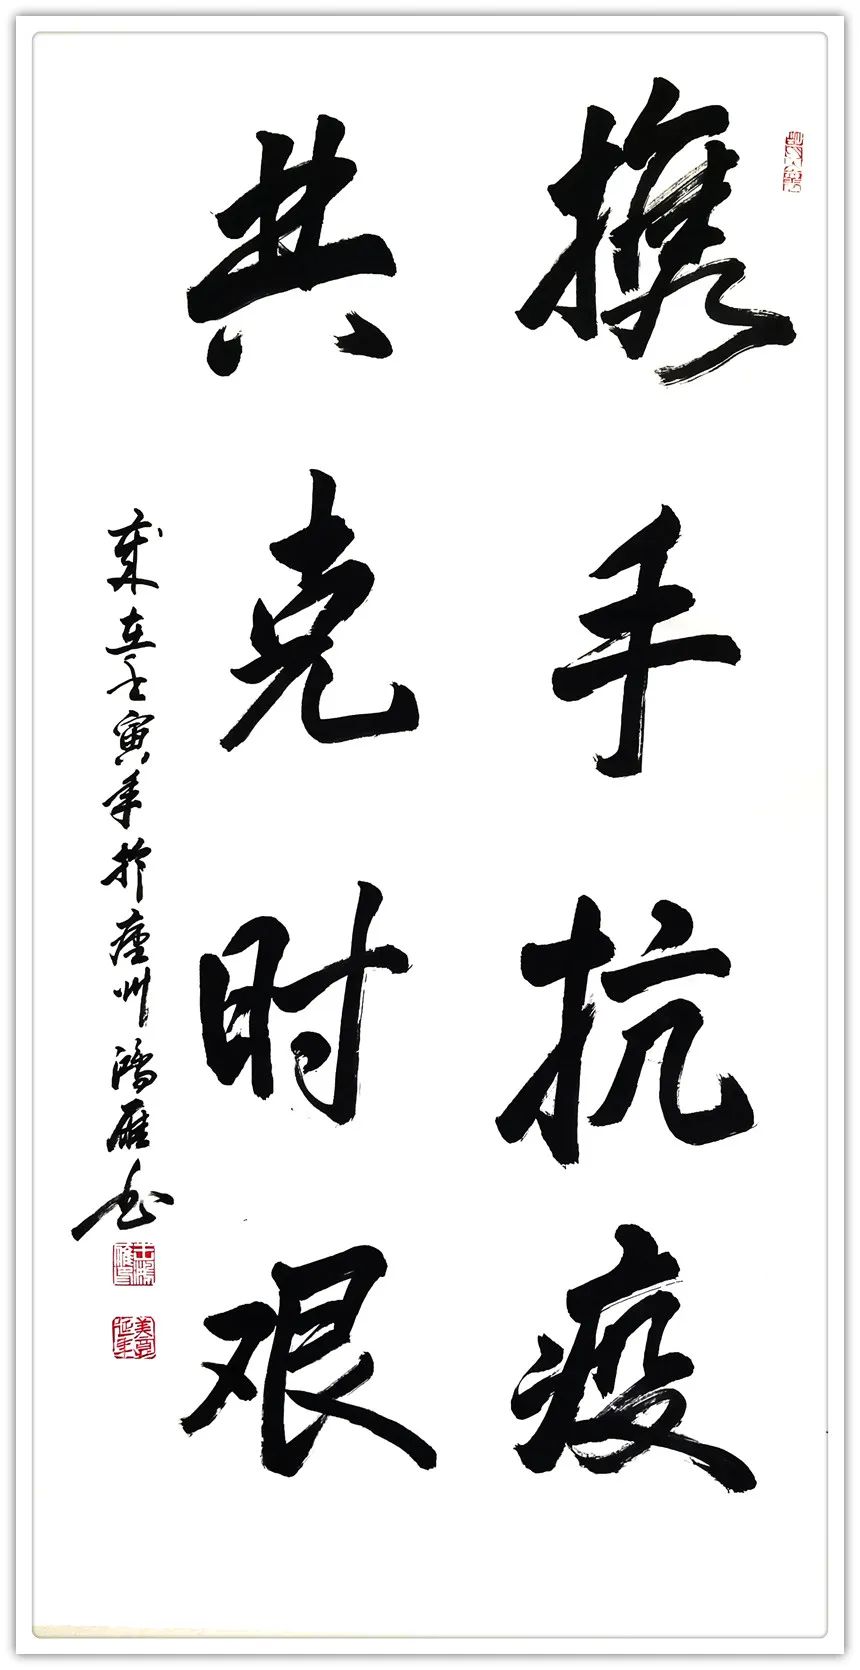 携手抗疫
共克时艰
岁在壬寅年于 州鸿雁书